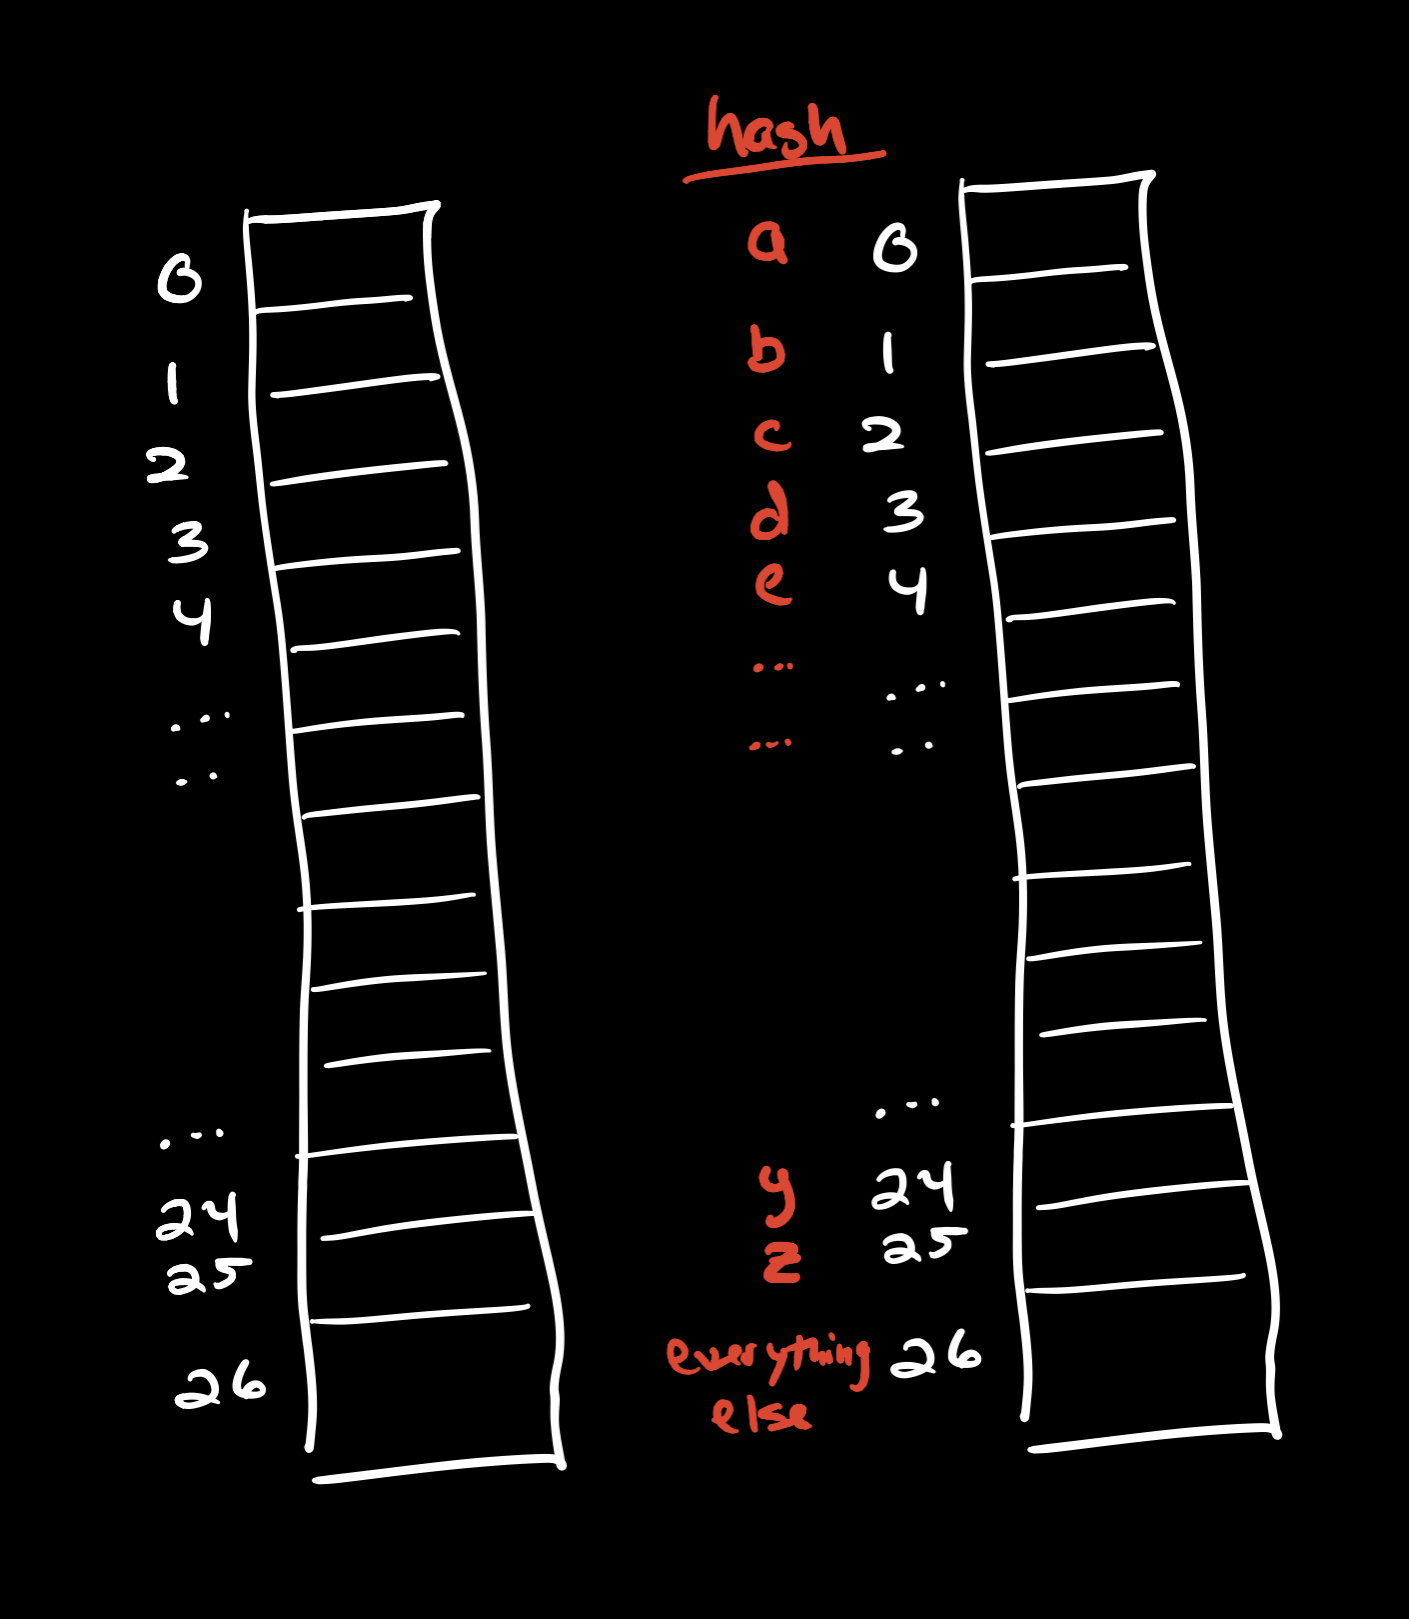 0
1
2
3
4
...
..
...
24
25
26
hash
a 0
b 1
c 2
d 3
e 4
... ...
... ..
...
y 24
z 25
everything 26
else